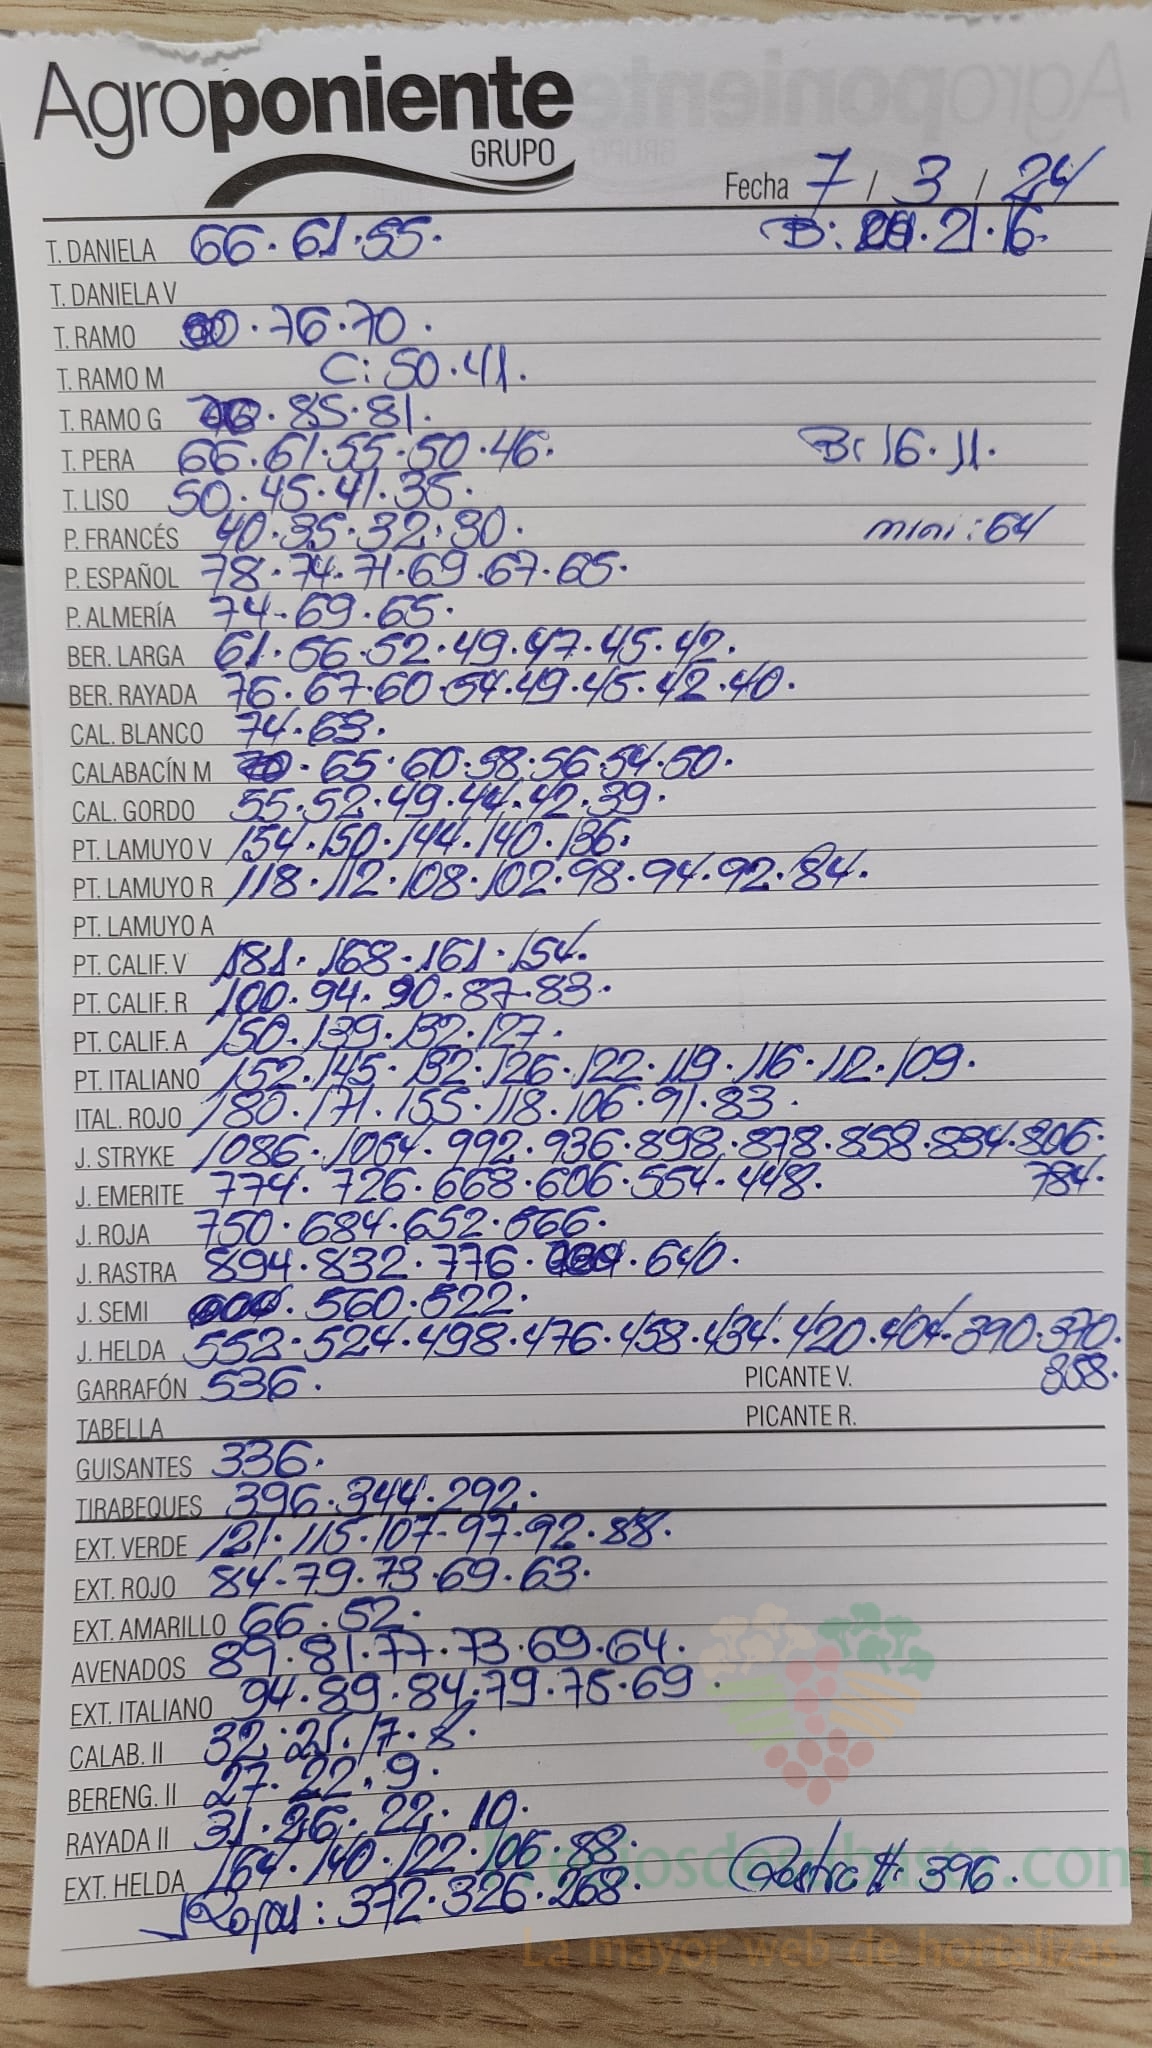 Agroponiente
GRUPO
Fecha 7 / 3 / 24
T. DANIELA 66. 61. 55. B: 21. 16.
T. DANELA V
T. RAMO 76. 70.
T. RAMO M C: 50. 41.
T. RAMO G 85. 81.
T. PERA 66. 61. 55. 50. 46. B: 16. 11.
T. LISO 50. 45. 41. 35.
P. FRANCÉS 40. 35. 32. 30. mini: 64
P. ESPAÑOL 78. 74. 71. 69. 67. 65.
P. ALMERÍA 74. 69. 65.
BER. LARGA 61. 56. 52. 49. 47. 45. 42.
BER. RAYADA 76. 67. 60. 54. 49. 45. 42. 40.
CAL. BLANCO 74. 63.
CALABACÍN M 70. 65. 60. 58. 56. 54. 50.
CAL. GORDO 55. 52. 49. 44. 42. 39.
PT. LAMUYO V 154. 150. 144. 140. 136.
PT. LAMUYO R 118. 112. 108. 102. 98. 94. 92. 84.
PT. LAMUYO A
PT. CALIF. V 181. 168. 161. 154.
PT. CALIF. R 100. 94. 90. 87. 83.
PT. CALIF. A 150. 139. 132. 127.
PT. ITALIANO 152. 145. 132. 126. 122. 119. 116. 112. 109.
ITAL. ROJO 180. 171. 155. 118. 106. 91. 83.
J. STRYKE 1086. 1054. 992. 936. 898. 878. 858. 834. 806.
784.
J. EMERITE 774. 726. 668. 606. 554. 448.
J. ROJA 750. 684. 652. 566.
J. RASTRA 894. 832. 776. 640.
J. SEMI 560. 522.
J. HELDA 552. 524. 498. 476. 458. 434. 420. 404. 390. 370.
358.
GARRAFÓN 536. PICANTE V.
TABELLA PICANTE R.
GUISANTES 336.
TIRABEQUES 396. 344. 292.
EXT. VERDE 121. 115. 107. 97. 92. 88.
EXT. ROJO 84. 79. 73. 69. 63.
EXT. AMARILLO 66. 52.
AVENADOS 89. 81. 77. 73. 69. 64.
EXT. ITALIANO 94. 89. 84. 79. 75. 69.
CALAB. II 32. 25. 17. 8.
BERENG. II 27. 22. 9.
RAYADA II 31. 26. 22. 10.
EXT. HELDA 164. 140. 122. 106. 88. Rastra II: 396.
J Rojas: 372. 326. 268.
La mayor web de hortalizas